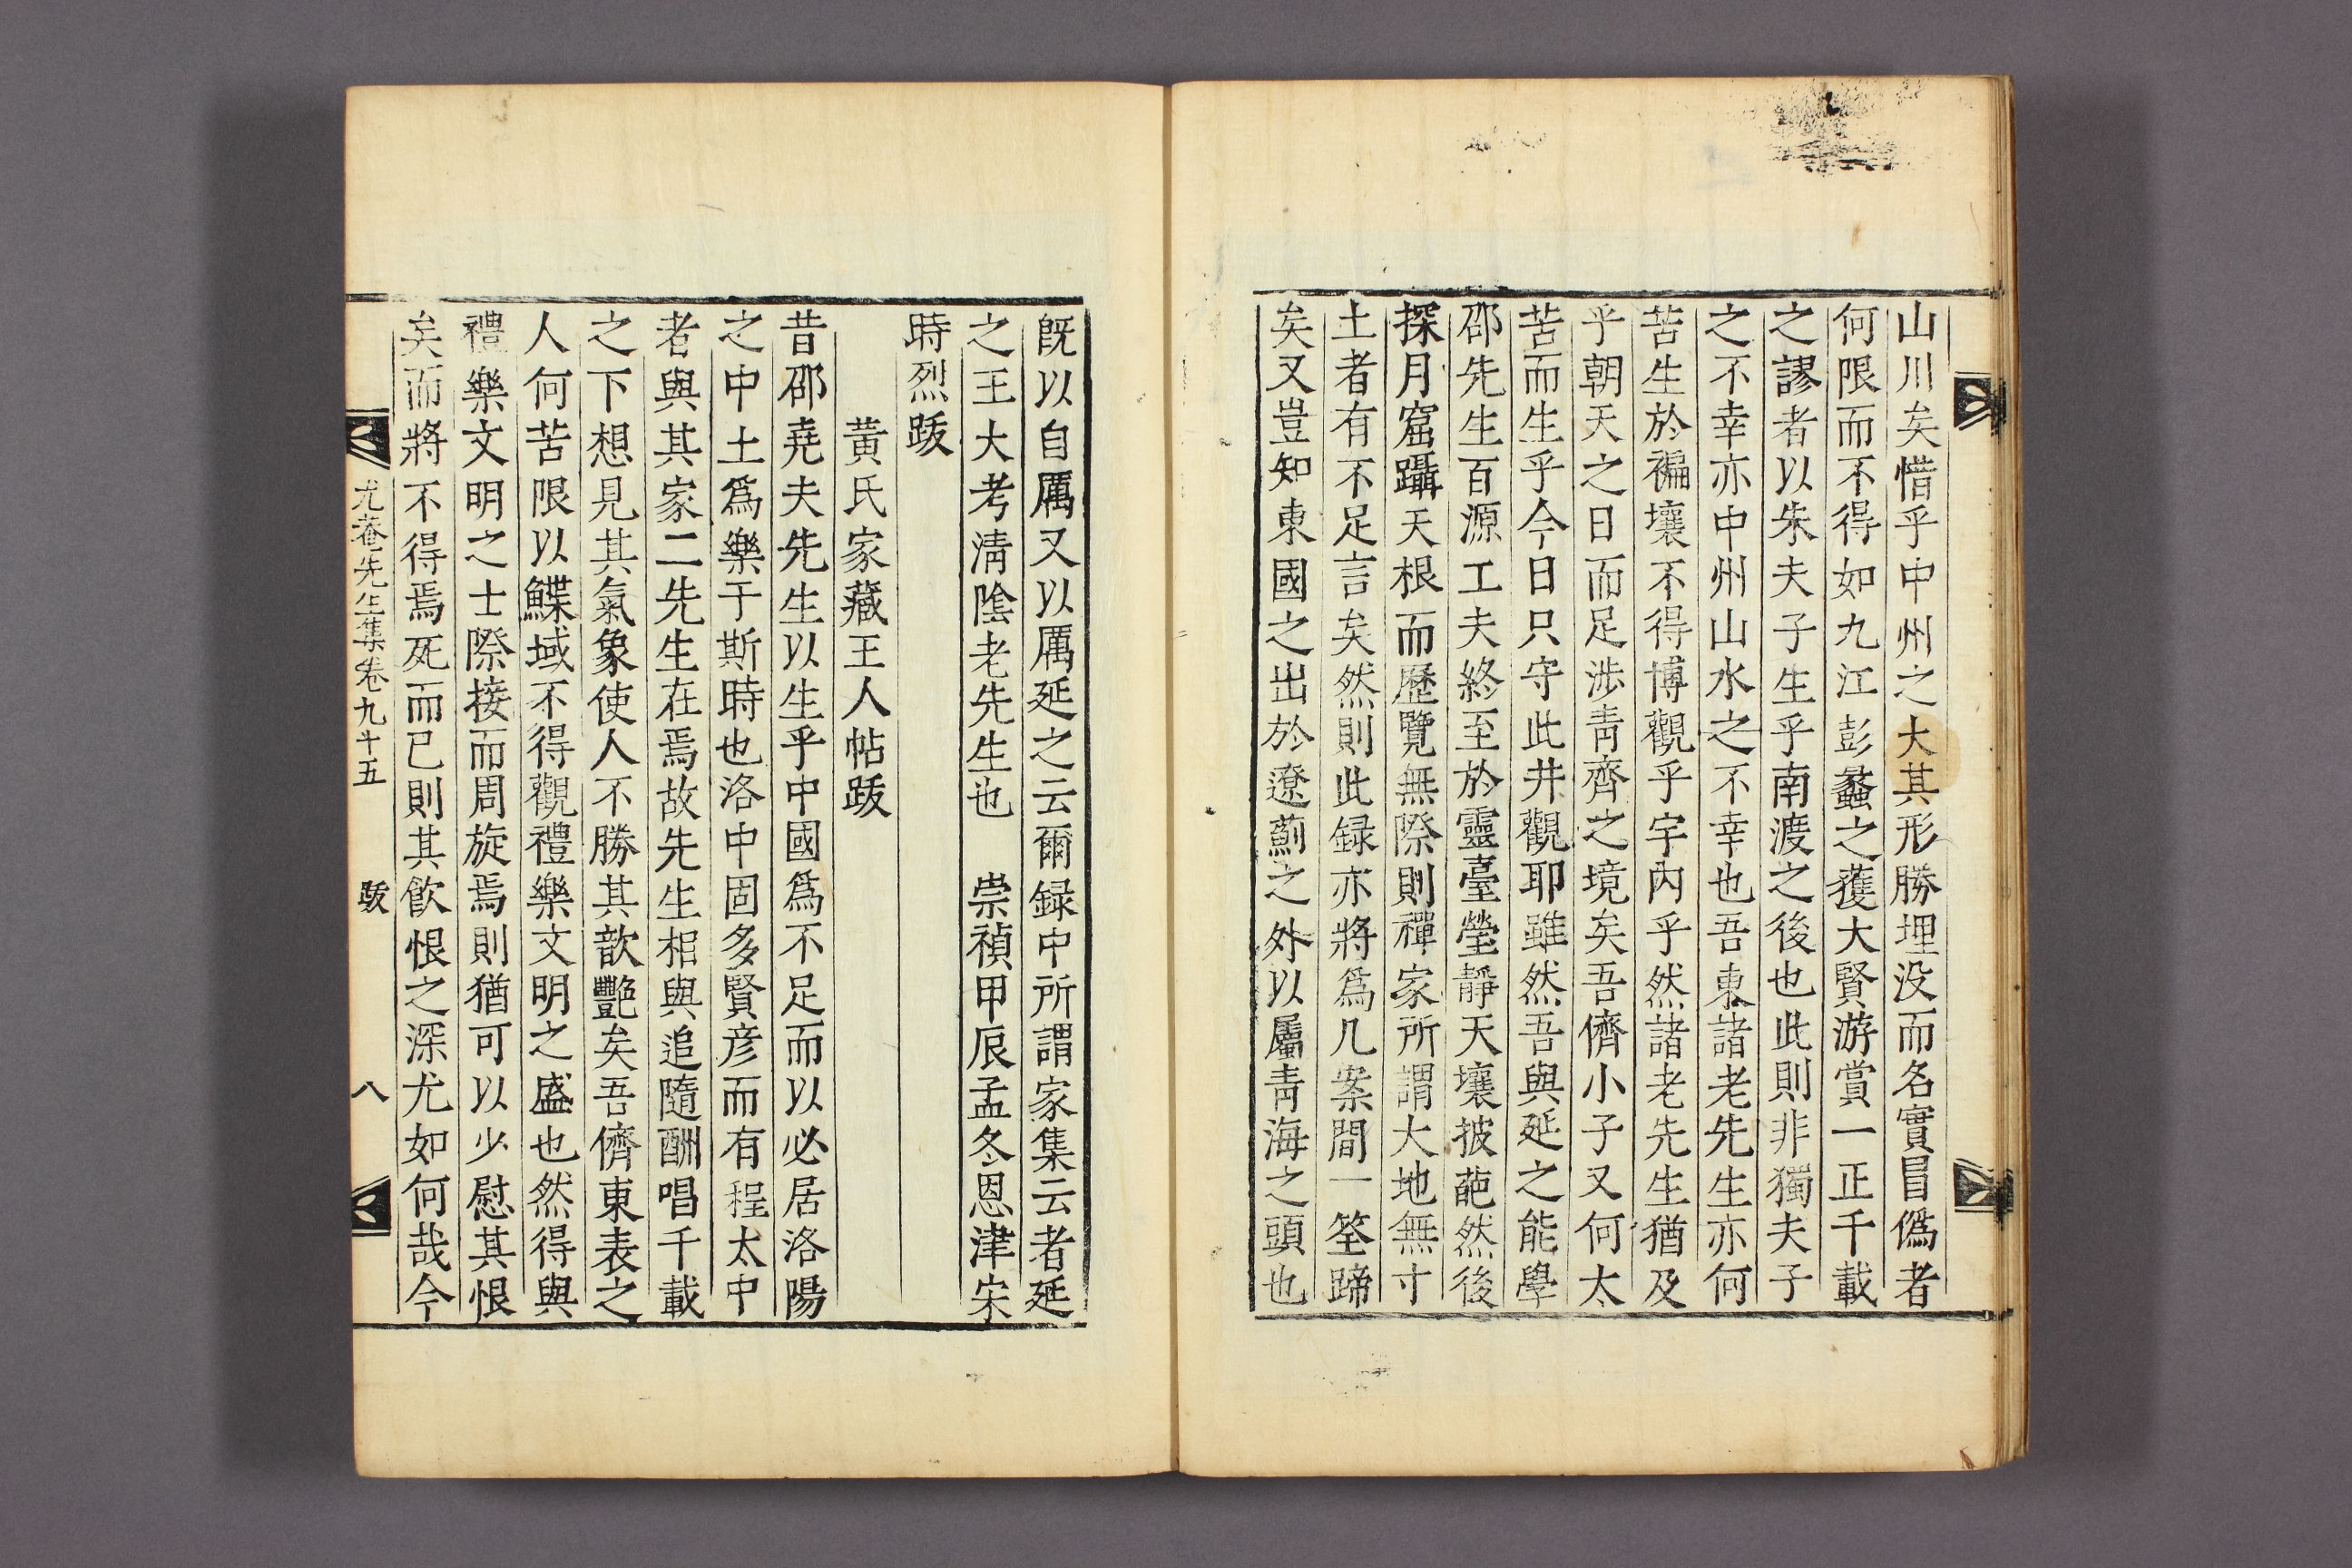 山川矣惜乎中州之大其形勝埋没而名實冒僞者
何限而不得如九江彭蠡之獲大賢游賞一正千載
之謬者以朱夫子生乎南渡之後也此則非獨夫子
之不幸亦中州山水之不幸也吾東諸老先生亦何
苦生於褊壤不得博觀乎宇內乎然諸老先生猶及
乎朝天之日而足涉青齊之境矣吾儕小子又何太
苦而生乎今日只守此井觀耶雖然吾與延之能學
邵先生百源工夫終至於靈臺瑩靜天壤披葩然後
探月窟躡天根而歷覽無際則禪家所謂大地無寸
土者有不足言矣然則此録亦將爲几案間一筌蹄
矣又豈知東國之出於遼薊之外以屬青海之頭也
旣以自厲又以厲延之云爾録中所謂家集云者延
之王大考淸陰老先生也 崇禎甲辰孟冬恩津宋
時烈跋
黃氏家藏王人帖跋
昔邵堯夫先生以生乎中國爲不足而以必居洛陽
之中土爲樂于斯時也洛中固多賢彦而有程太中
者與其家二先生在焉故先生相與追隨酬唱千載
之下想見其氣象使人不勝其歆艷矣吾儕東表之
人何苦限以鰈域不得觀禮樂文明之盛也然得與
禮樂文明之士際接而周旋焉則猶可以少慰其恨
矣而將不得焉死而已則其飮恨之深尤如何哉今
尤菴先生集卷九十五 跋 八